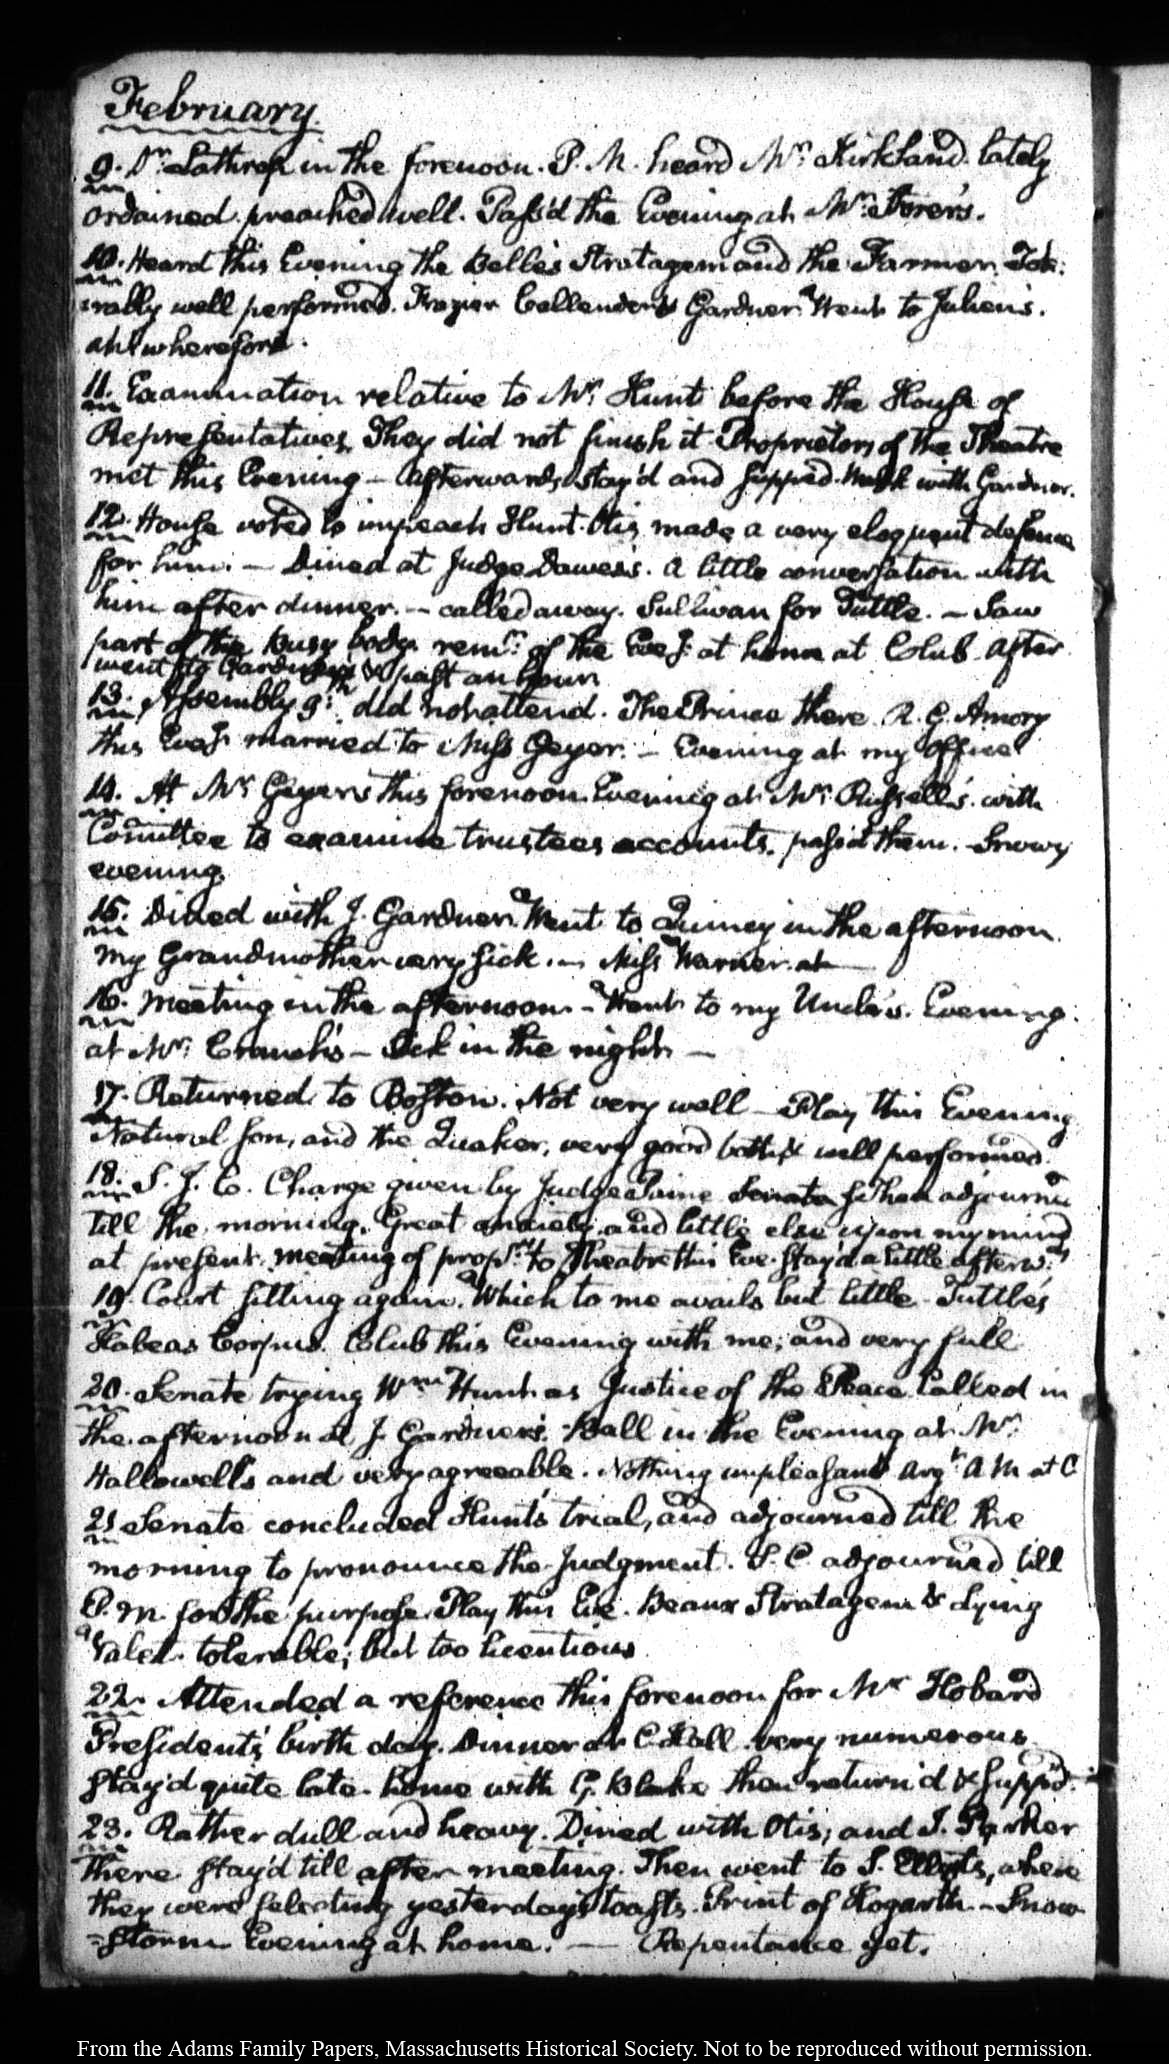 February.
9. Dr. Lathrop in the forenoon. P. M. heard Mr. Kirkland lately
ordained. preached well. Pass'd the Evening at Mr. Storer's.
10. Heard this Evening the Belle's Stratagem and the Farmer. Tole-
:rably well performed. Frazier Callender & Gardner. Went to Julien's.
ah! wherefore.
11. Examination relative to Mr. Hunt before the House of
Representatives. They did not finish it. Proprietors of the Theatre
met this Evening — Afterwards stay'd and supped. Walk with Gardner.
12. House voted to impeach Hunt. Otis made a very eloquent defence
for him. — Dined at Judge Dawes's. A little conversation with
him after dinner. — called away. Sullivan for Tuttle. — Saw
part of the Busy body. remr. of the Eveg. at home at Club. After
went to Gardner's & past an hour
13. Assembly 9th. did not attend. The Prince there. R. G. Amory
this Eveg. married to Miss Geyer. — Evening at my Office
14. At Mr. Geyer's this forenoon. Evening at Mr. Russell's. with
Comittee to examine trustees accounts. pass'd them. — Snowy
evening.
15. Dined with J. Gardner. Went to Quincy in the afternoon.
My Grandmother very sick. — Miss Warner at
16. Meeting in the afternoon — Went to my Uncle's. Evening
at Mr. Cranch's — Sick in the night —
17. Returned to Boston. Not very well — Play this Evening
Natural Son, and the Quaker, very good both & well performed.
18. S. J. C. Charge given by Judge Paine Senate & then adjourned
till the morning. Great anxiety and little else upon my mind
at present. Meeting of propr. to Theatre this Eve. Stay'd a little afterwds
19. Court sitting again. Which to me avails but little. Tuttle's
Habeas Corpus. Club this Evening with me; and very full
20. Senate trying Wm. Hunt as Justice of the Peace. Called in
the afternoon at J. Gardner's. Ball in the Evening at Mr.
Hallowell's and very agreeable. Nothing unpleasant. Argt A M at C
21 Senate concluded Hunt's trial, and adjourned till the
morning to pronounce the Judgment. S. C. adjourned till
P. M. for the purpose. Play this Eve. Beaux Stratagem & dying
Valet. tolerable; but too licentious
22. Attended a reference this forenoon for Mr. Hobard
President's birth day. Dinner at C. Hall very numerous.
Stay'd quite late. home with G. Blake then return'd & supp'd.
23. Rather dull and heavy. Dined with Otis, and J. Parker
there. Stay'd till after meeting. Then went to S. Elliot's, where
they were selecting yesterday's toasts. Print of Hogarth. — Snow
-storm Evening at home. — Repentance yet.
From the Adams Family Papers, Massachusetts Historical Society. Not to be reproduced without permission.